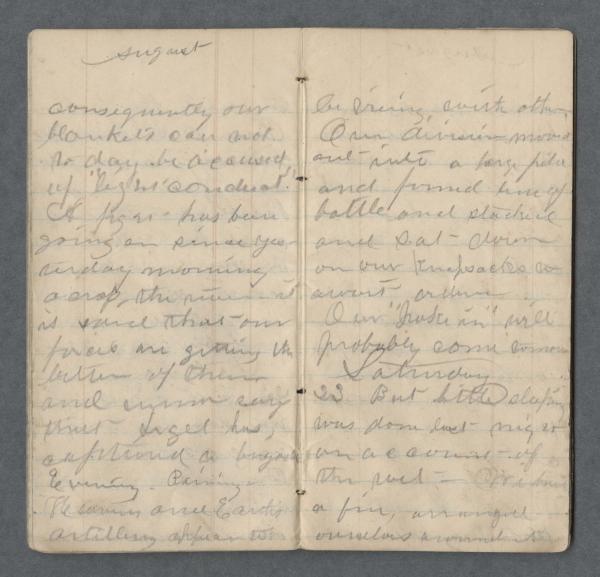 August
consequently our
blankets can not
to day be accused
of "light conduct."
A fight has been
going on since yes-
terday morning
across the river it
is said that our
forces are getting the
better of them
and rumor says
that Sigel has
captured a brigade
Evening. Raining.
Heavens and Earths
artillery appear to
be vieing with other
Our division moved
out into a large field
and formed line of
battle and stacked
and sat down
on our knapsacks to
await orders
Our "turn in" will
probably come
Saturday
23 But little sleeping
was done last night
on account of
the wet - We built
a fire, arranged
ourselves around it